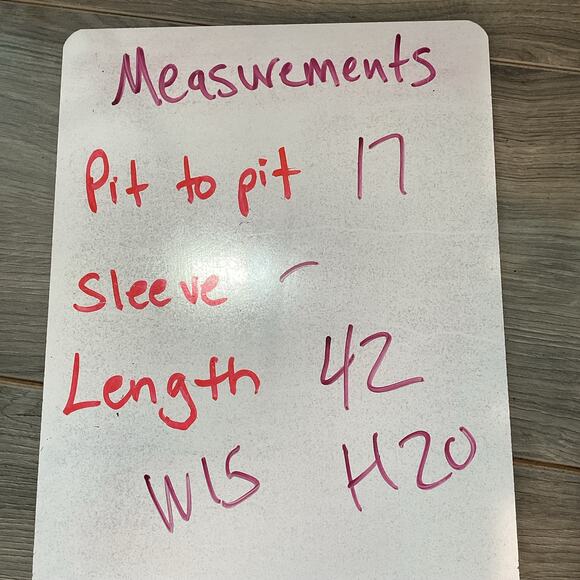 Measurements
Pit to pit 17
Sleeve -
Length 42
W15 H20